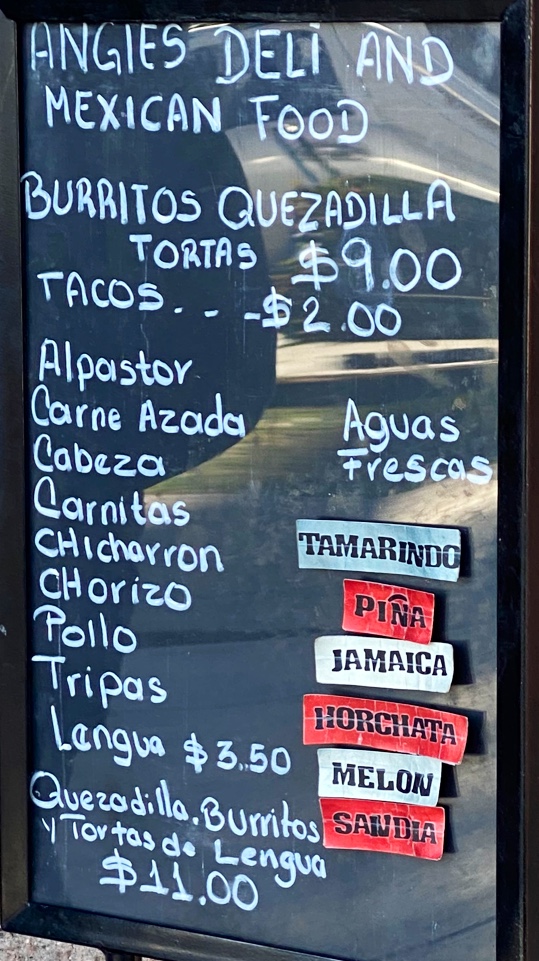 ANGIES DELI AND
MEXICAN FOOD
BURRITOS QUEZADILLA
TORTAS $9.00
TACOS. - -$2.00
Alpastor
Carne Azada
Cabeza
Carnitas
CHicharron
CHorizo
Pollo
Tripas
Lengua $3.50
Quezadilla.Burritos
y Tortas de Lengua
$11.00
Aguas
Frescas
TAMARINDO
PIÑA
JAMAICA
HORCHATA
MELON
SANDIA